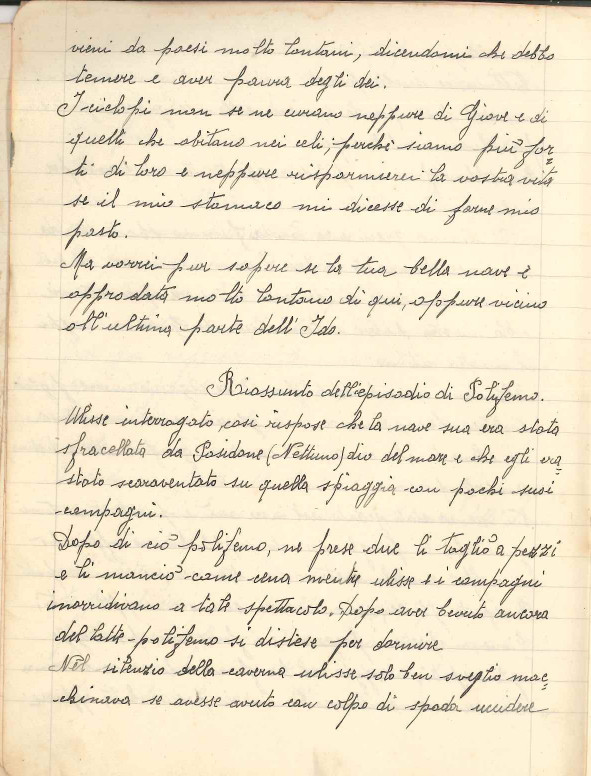 vieni da paesi molto lontani, dicendomi che debbo
temere e aver paura degli dei.
I ciclopi non se ne curano neppure di Giove e di
quelli che abitano nei celi; perchè siamo più for=
ti di loro e neppure risparmierei la vostra vita
se il mio stomaco mi dicesse di farne mio
pasto.
Ma vorrei pur sapere se la tua bella nave è
approdata molto lontano di qui, oppure vicino
all'ultima parte dell'Ido.
Riassunto dell'episodio di Polifemo.
Ulisse interrogato, così rispose che la nave sua era stata
sfracellata da Posidone (Nettuno) dio del mare e che egli era=
stato scaraventato su quella spiaggia con pochi suoi
compagni.
Dopo di ciò polifemo, ne prese due li tagliò a pezzi
e li mangiò come cena mentre ulisse e i compagni
inorridivano a tale spettacolo. Dopo aver bevuto ancora
del latte polifemo si distese per dormire
Nel silenzio della caverna ulisse solo ben sveglio mac=
chinava se avesse avuto con colpo di spada uccidere